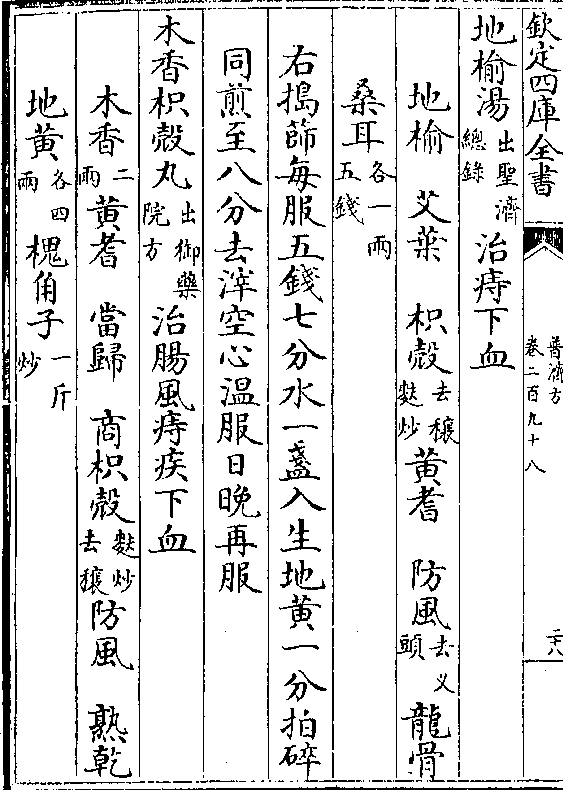 欽定四庫全書
普濟方
卷二百九十八
二十八
地榆湯出聖濟總錄治痔下血
地榆　艾葉　枳殼去穰麩炒黄耆　防風去乂頭龍骨
桑耳各一兩五錢
右搗篩每服五錢七分水一盞入生地黄一分拍碎
同煎至八分去滓空心温服日晚再服
木香枳殼丸出御藥院方治腸風痔疾下血
木香二兩黄耆　當歸　商枳殼麩炒去穰防風　熟乾
地黄各四兩槐角子一斤炒